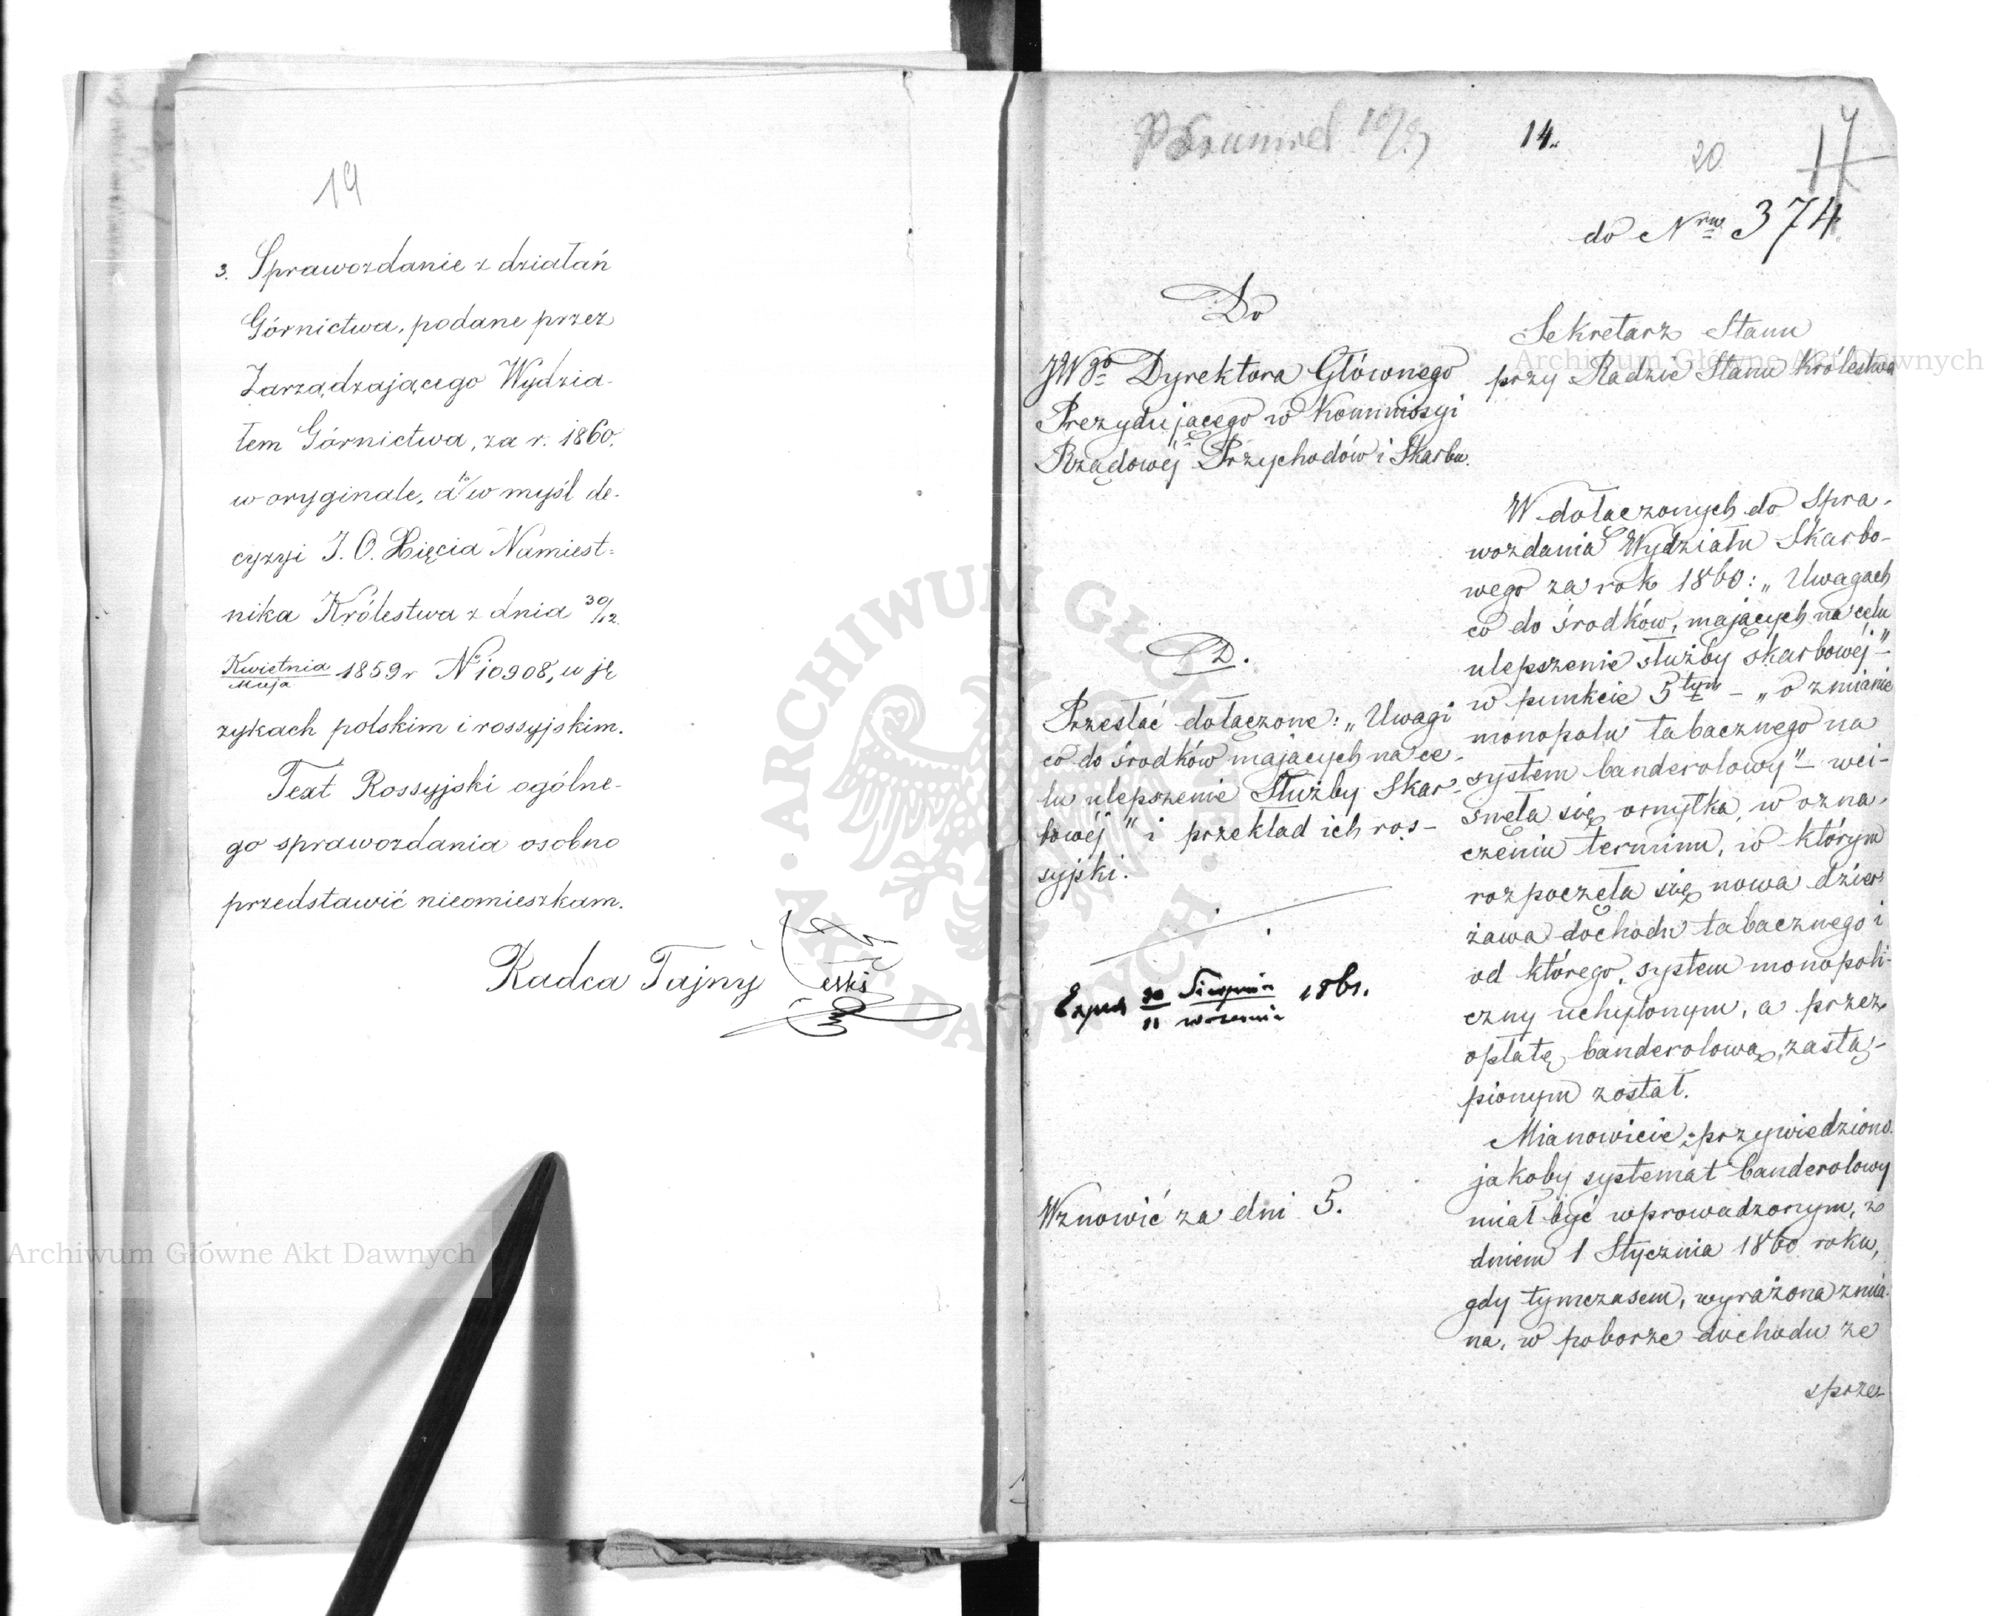 19
3. Sprawozdanie z działań
Górnictwa, podane przez
Zarządzającego Wydzia-
łem Górnictwa, za r. 1860.
w oryginale, a to w myśl de-
cyzyi J. O. Xięcia Namiest-
nika Królestwa z dnia 30/12
Kwietnia/Maja 1859 r No 10908, w ję
zykach polskim i rossyjskim.
Text Rossyjski ogólne-
go sprawozdania osobno
przedstawić nieomieszkam.
Radca Tajny
14.
20
17
do Nru 374
Do
JWgo Dyrektora Głównego
Prezydującego w Kommissyi
Rządowej Przychodów i Skarbu.
D.
Przesłać dołączone: „Uwagi
co do środków mających na ce-
lu ulepszenie Służby Skar-
bowéj" i przekład ich ros-
syjski.
Exped 30 Sierpnia/11 września 1861.
Wznowić za dni 5.
Sekretarz Stanu
przy Radzie Stanu Królestwa
W dołączonych do Spra-
wozdania Wydziału Skarbo-
wego za rok 1860: „Uwagach
co do środków, mających na celu
ulepszenie służby skarbowéj"
w punkcie 5tym – „o zmianie
monopolu tabacznego na
system banderolowy" – wci-
snęła się omyłka, w ozna-
czeniu terminu, w którym
rozpoczęła się nowa dzier-
żawa dochodu tabacznego i
od którego, system monopoli-
czny uchylonym, a przez
opłatę banderolową, zastą-
pionym został.
Mianowicie: przywiedziono
jakoby systemat banderolowy
miał być wprowadzonym, z
dniem 1 Stycznia 1860 roku,
gdy tymczasem, wyrażona zmia-
na, w poborze dochodu ze
sprze-
Archiwum Główne Akt Dawnych
Archiwum Główne Akt Dawnych
ARCHIWUM GŁÓWNE AKT DAWNYCH